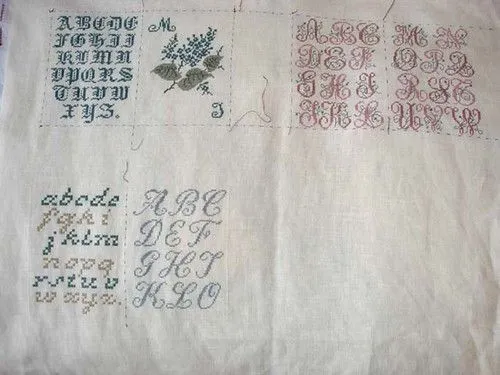 ABCDE
FGHIJ
KLMN
OPQRS
TUVW
XYS.
M
J
ABC
DEF
GHI
JKL
M N
OPQ
RST
UVW
abcde
fghi
jklm
nopq
rstuv
wxyz.
ABC
DEF
GHI
KLO